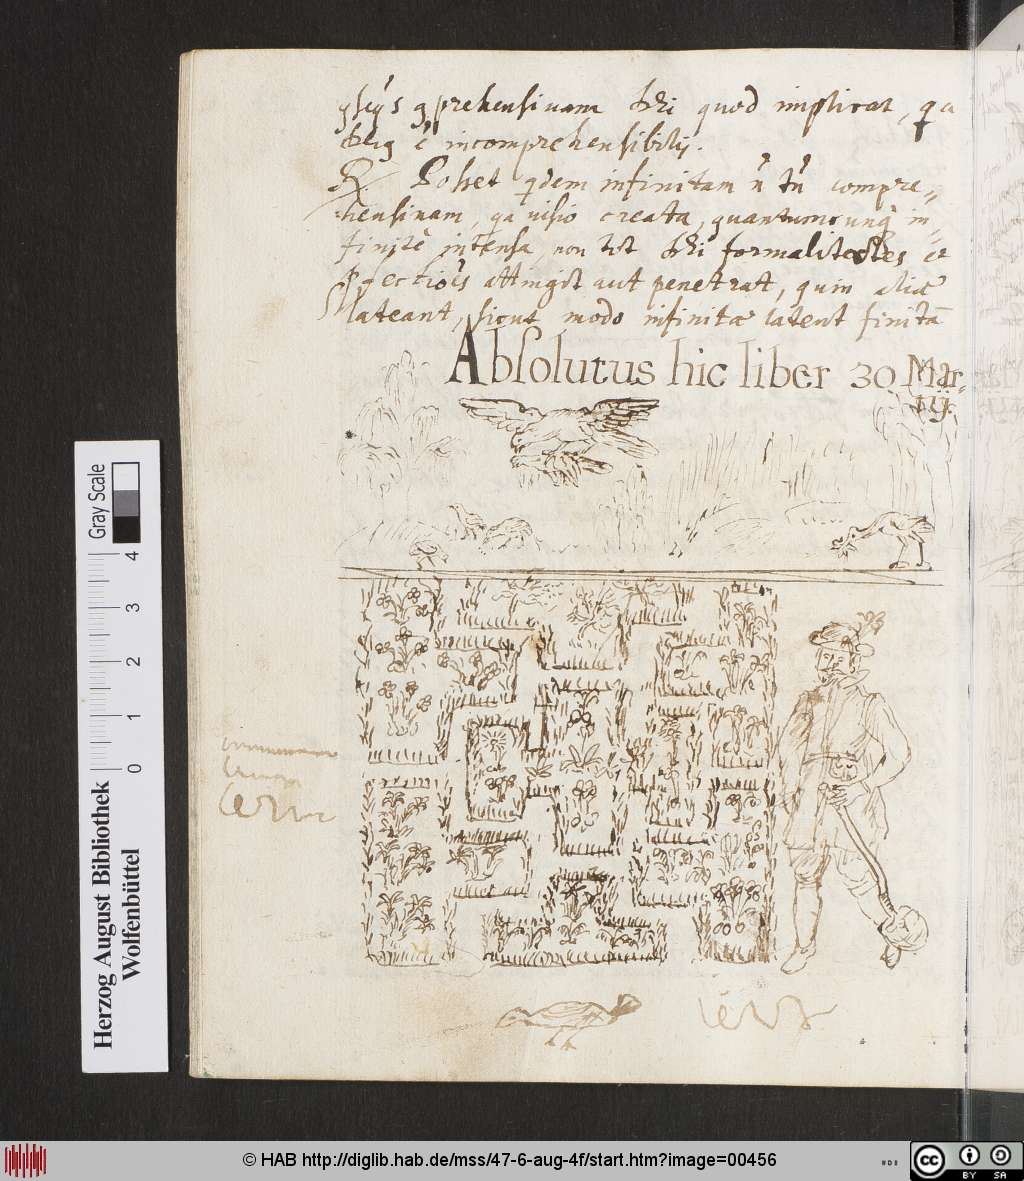 prehensivam dei quod implicat, qa
deus ē incomprehensibilis.
R. Posset qdem infinitam n̄ tn̄ compre-
hensivam, qa visio creata, quantumcunq in-
finitè intensa, non tot dei formalitates et
pfectiões attingit aut penetrat, quin aliæ
lateant, sicut modo infinitæ latent finitā
Absolutus hic liber 30 Mar-
tij.
Gray Scale
4
3
2
1
0
Herzog August Bibliothek
Wolfenbüttel
© HAB http://diglib.hab.de/mss/47-6-aug-4f/start.htm?image=00456
HAB
cc BY SA